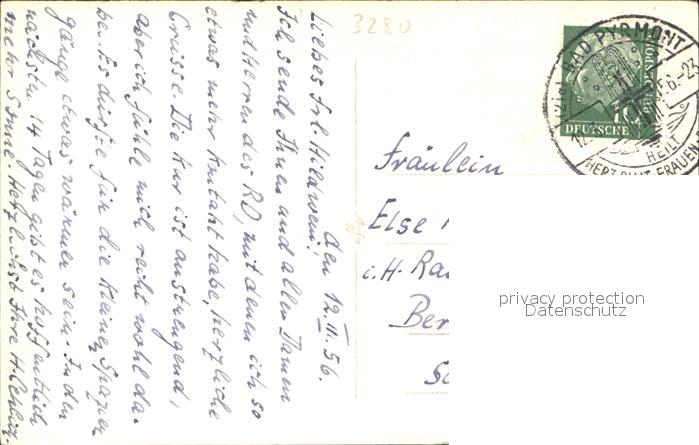 3280
den 12. II. 56.
Liebes Frl. Hildwein!
Ich sende Ihnen und allen Damen
und Herren des RO, mit denen ich so
etwas mehr Kontakt habe, herzliche
Grüsse. Die Kur ist anstrengend,
aber ich fühle mich recht wohl da-
bei. Es dürfte für die kleinen Spazier-
gänge etwas wärmer sein. In den
nächsten 14 Tagen gibt es hoffentlich
mehr Sonne. Herzlichst Ihre H.
BAD PYRMONT
BUNDESPOST
10
DEUTSCHE
HEILT
HERZ BLUT FRAUEN
Fräulein
Else
i. H.
Ber
privacy protection
Datenschutz